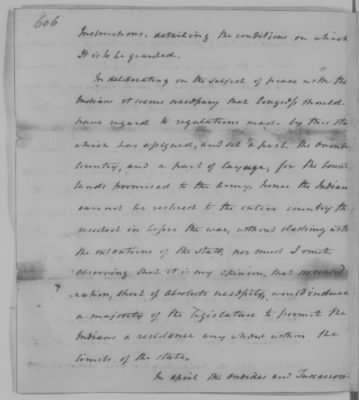 606
Instructions, detailing the conditions on which
it is to be granted.
In deliberating on the subject of peace with the
Indians it seems necessary that Congress should
have regard to regulations made by this Sta
which has assigned, and set a part the Ononda
Country, and a part of Cayuga, for the boun
lands promised to the Army, hence the Indian
cannot be restored to the entire country th
resided in before the war, without clashing with
the intentions of the State, nor must I omit
observing that it is my opinion, that no consid
ration, short of absolute necessity, would induce
a majority of the Legislature to permit the
Indians a residence any where within the
limits of the state.
In april the Oneidas and Tuscarora